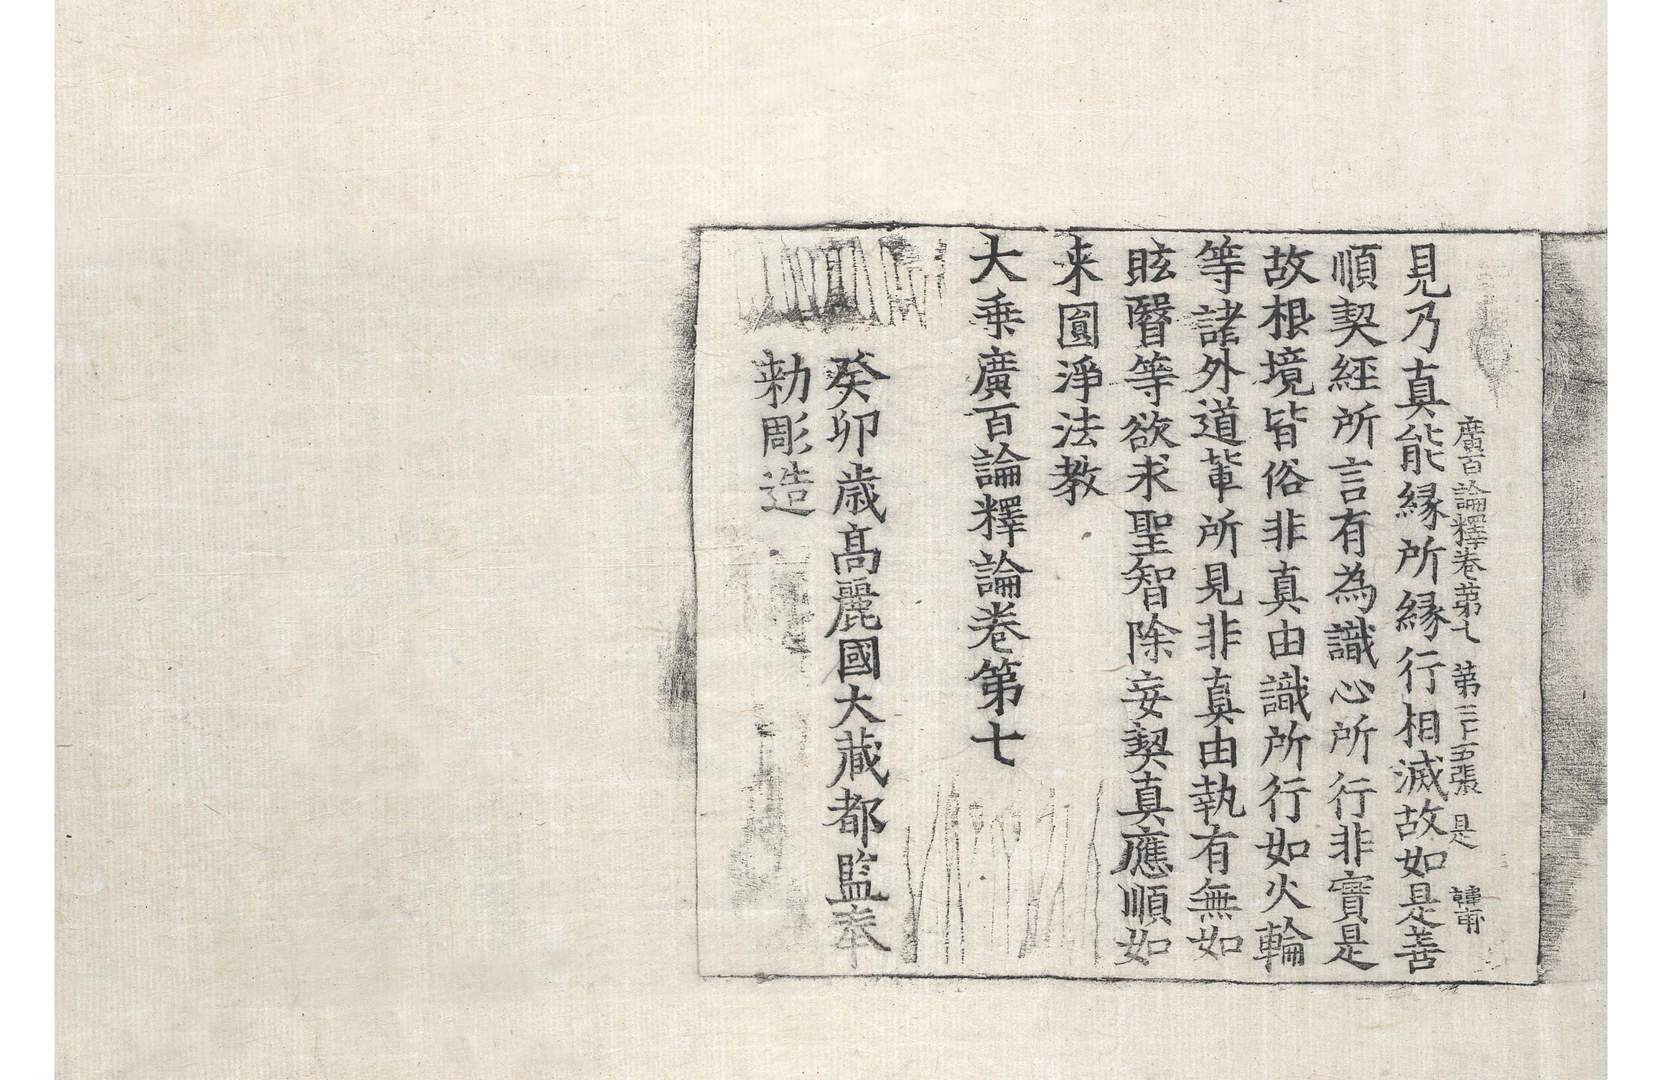 廣百論釋卷第七 第二十五張 是
見乃真能縁所縁行相滅故如是善
順契經所言有為識心所行非實是
故根境皆俗非真由識所行如火輪
等諸外道軰所見非真由執有無如
眩瞖等欲求聖智除妄契真應順如
来圓淨法教
大乗廣百論釋論卷第七
癸卯歳髙麗國大藏都監奉
勅彫造